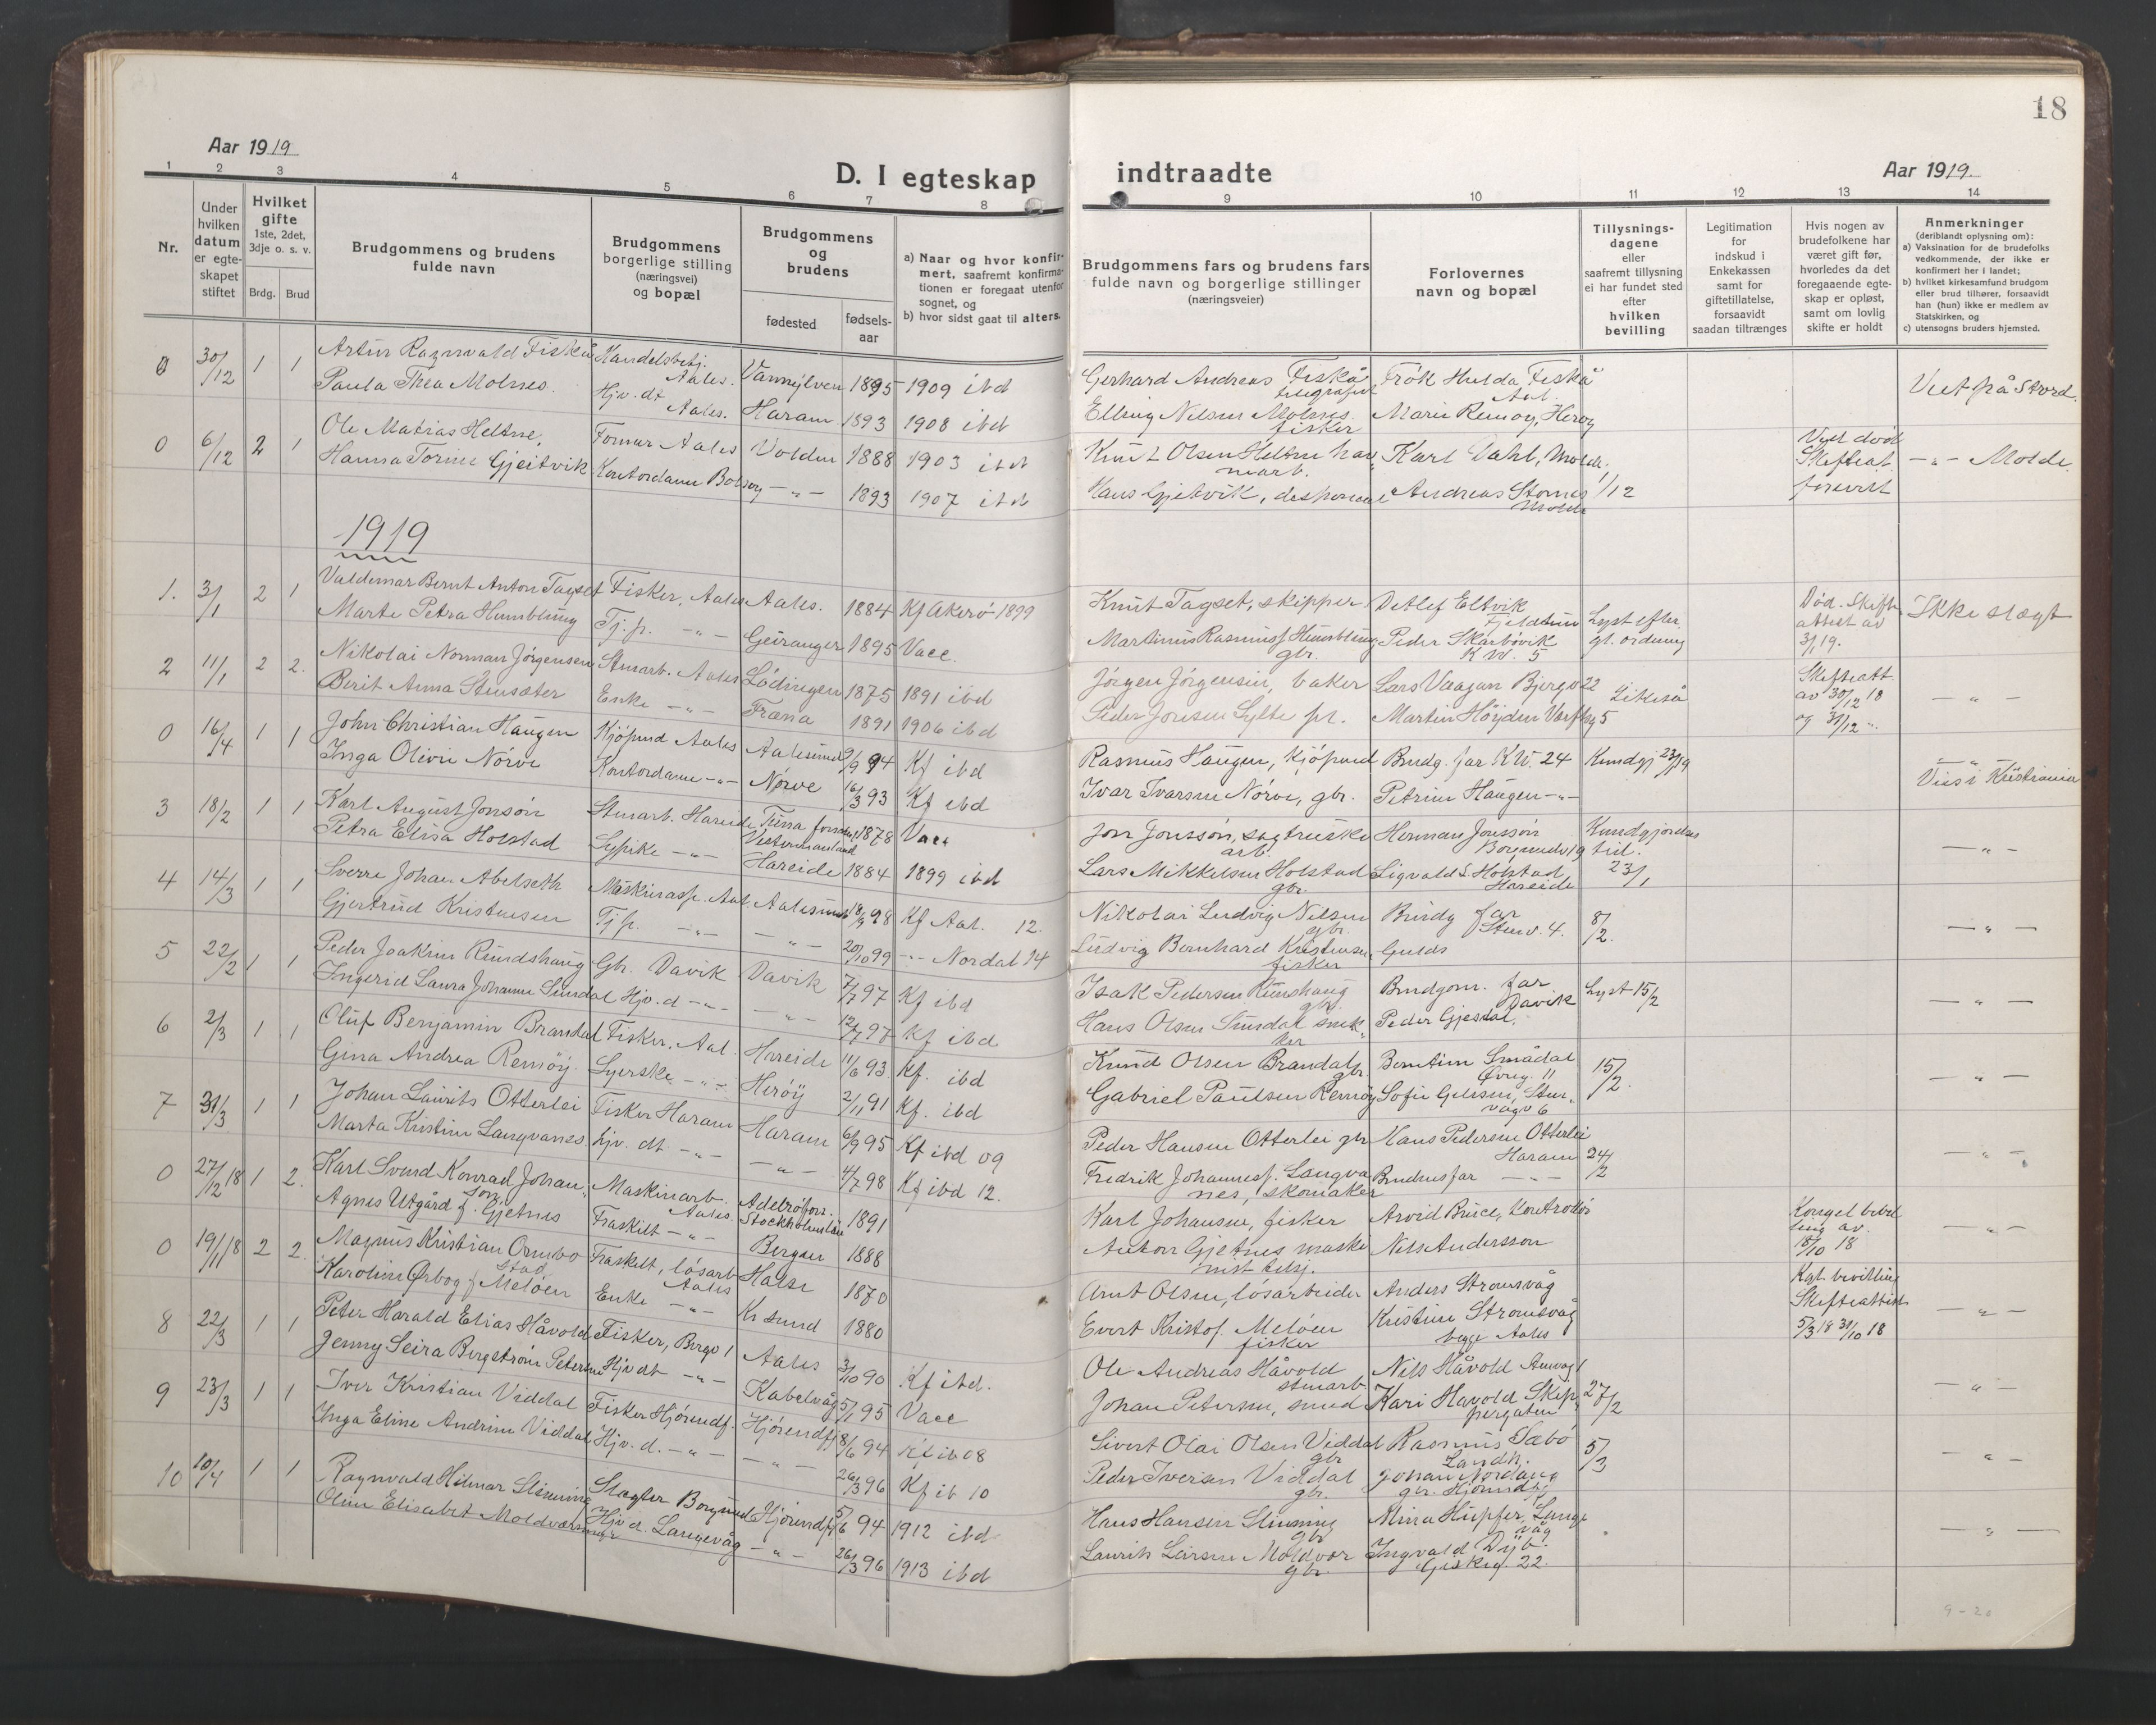 18
Aar 1919
D. I egteskap indtraadte
Aar 1919
1 2 3 4 5 6 7 8 9 10 11 12 13 14
Nr.
Under hvilken datum er egteskapet stiftet
Hvilket gifte 1ste, 2det, 3dje o. s. v.
Brdg. Brud
Brudgommens og brudens fulde navn
Brudgommens borgerlige stilling (næringsvei) og bopæl
Brudgommens og brudens
fødested
fødselsaar
a) Naar og hvor konfirmert, saafremt konfirmationen er foregaat utenfor sognet, og
b) hvor sidst gaat til alters.
Brudgommens fars og brudens fars fulde navn og borgerlige stillinger (næringsveier)
Forlovernes navn og bopæl
Tillysningsdagene eller saafremt tillysning ei har fundet sted efter hvilken bevilling
Legitimation for indskud i Enkekassen samt for giftetillatelse, forsaavidt saadan tiltrænges
Hvis nogen av brudefolkene har været gift før, hvorledes da det foregaaende egteskap er opløst, samt om lovlig skifte er holdt
Anmerkninger (deriblandt oplysning om):
a) Vaksination for de brudefolks vedkommende, der ikke er konfirmert her i landet;
b) hvilket kirkesamfund brudgom eller brud tilhører, forsaavidt han (hun) ikke er medlem av Statskirken, og
c) utensogns bruders hjemsted.
0 30/12 1 1 Artur Ragnvald Fiskå Handelsbetj. Aales. Vannylven 1895 1909 ibd Gerhard Andreas Fiskå telegrafist Frøk Hulda Fiskå Aal. Viet på Stord.
Paula Thea Molnes. Hjv. dt Aales. Haram 1893 1908 ibd Elling Nilsen Molnes. fisker Marie Remøy, Herøy
0 6/12 2 1 Ole Matias Heltne, Former Aales Volden 1888 1903 ibd Knut Olsen Heltne Karl Dahl, Molde, 1/12 Skifteat. forevist -"- Molde.
Hanna Torine Gjeitvik Kontordame Bolsøy -"- 1893 1907 ibd Hans Gjeitvik, Andreas Stornes Molde
1919
1. 3/1 2 1 Valdemar Bernt Anton Tagset Fisker, Aales Aales. 1884 Kf Akerö 1899 Knut Tagset, skipper Detlef Eltvik Lyst efter gl. ordning Død. Skifteattest av 3/1 19. Ikke slegt
Marte Petra Humblung Tj. p. -"- Geiranger 1895 Vacc. Martinus Rasmuss Humblung gbr. Peder Skarbövik K.W. 5
2 11/1 2 2. Nikolai Norman Jörgensen Stuarb. Aales Lödingen 1875 1891 ibd Jörgen Jörgensen, baker Lars Vaagan Bjergv 22 Likeså Skifteatt. av 30/12 18 og 31/12 " -"-
Berit Anna Stensæter Enke -"- Fræna 1891 1906 ibd Peder Jonsen Sylte pr. Martin Höyden Værftsg 5
0 16/4 1 1 John Christian Haugen Kjöpmd Aales Aalesund 9/9 94 Kf ibd Rasmus Haugen, Kjöpmd Brudg. far K.W. 24 Kundgj 23/9 -"- Vies i Kristiania
Inga Olivie Nörve Kontordame -"- Nörve 16/3 93 Kf ibd Ivar Ivarsen Nörve, gbr. Petrine Haugen -"-
3 18/2 1 1 Karl August Jonsön Stuarb. Hareide Vestermanland 1878 Vacc Jon Jonssön, arb. Herman Jonssön Borgundv 19 Kundgjordes tid. 23/1 -"-
Petra Elisa Holstad Sypike -"- Hareide 1884 1899 ibd Lars Mikkelsen Holstad gbr. Sigvald S. Holstad Hareide
4 14/3 1 1 Sverre Johan Abelseth Maskinasp. Aal. Aalesund 18/9 98 Kf Aal. 12. Nikolai Ludvig Nilsen gbr. Brudg far Stenv. 4. 8/2. -"-
Gjertrud Kristensen Tj p. -"- -"- 20/10 99 -"- Nordal 14 Ludvig Bernhard Kristensen, fisker
5 22/2 1 1 Peder Joakim Rundshaug Gbr. Davik Davik 7/7 97 Kf ibd Isak Pedersen Rundshaug gbr. Brudgom. far Davik Lyst 15/2 -"-
Ingerid Laura Johanne Sundal Hjv. d -"- -"- 12/7 97 Kf ibd Hans Olsen Sundal snekker Peder Gjesdal.
6 2/3 1 1 Oluf Benjamin Brandal Fisker, Aal. Hareide 11/6 93. Kf. ibd Knud Olsen Brandal gbr. Berntine Smådal Øvreg. 11 15/2. -"-
Gina Andrea Remöy. Syerske -"- Heröy 2/11 91 Kf. ibd Gabriel Paulsen Remöy Sofie Gelisen, Stenvågv 6
7 31/3 1 1 Johan Laurits Otterlei Fisker Haram Haram 6/9 95 Kf ibd 09 Peder Hansen Otterlei gbr Hans Pedersen Otterlei Haram 24/2 -"-
Marta Kristine Langvanes hjv. dt -"- -"- 4/7 98 Kf ibd 12. Fredrik Johannesf. Langvanes, skomaker Brudens far -"-
0 27/12 18 1 2. Karl Svend Konrad Johanson, Maskinarb. Aales. Adelröfors. Stockholmslän 1891 Karl Johansen, fisker Arvid Bruce, Kontrollör Kongel bevilling av. 18/10 18 -"-
Agnes Utgård f. Gjetnes Fraskilt -"- Bergen 1888 Anton Gjetnes maskinist Nils Andersson
0 19/11 18 2 2. Magnus Kristian Ormbostad Fraskilt, lösarb Aales Halse 1870 Arnt Olsen, lösarbeider Anders Strömsvåg Kgl. bevilling Skifteattest 5/3 18 31/10 18 -"-
Karoline Ørbog f Melöen Enke -"- Kr sund 1880 Evert Kristof. Melöen fisker Kristine Strömsvåg begge Aales
8 22/3 1 1 Peter Harald Elias Håvold Fisker, Bergv 1 Aales 3/10 90 Kf ibd. Ole Andreas Håvold stuarb. Nils Håvold 27/2 -"-
Jenny Seira Bergström Petersen Hjv dt -"- Kabelvåg 5/1 95 Vacc Johan Petersen, smed Kari Havold Skippergaten
9 23/3 1 1 Iver Kristian Viddal Fisker Hjörundf. Hjörundfj 8/6 94 Kf ib 08 Sivert Olai Olsen Viddal gbr Rasmus Sæbö 5/3 -"-
Inga Eline Andrine Viddal Hjv. d. -"- -"- 26/3 96 Kf ib 10 Peder Iversen Viddal gbr. Johan Nordang gbr. Hjörundfj
10 10/4 1 1 Ragnvald Hilmar Slinning Slagter Borgund Hjörundfj 5/6 94 1912 ibd Hans Hansen Slinning gbr Mina Hupfer, Langevåg -"-
Oline Elisabet Moldvær Hjv d. Langevåg -"- 26/3 96 1913 ibd Laurits Larsen Moldvær gbr. Ingvald Dyb. Giskeg. 22.
9-20